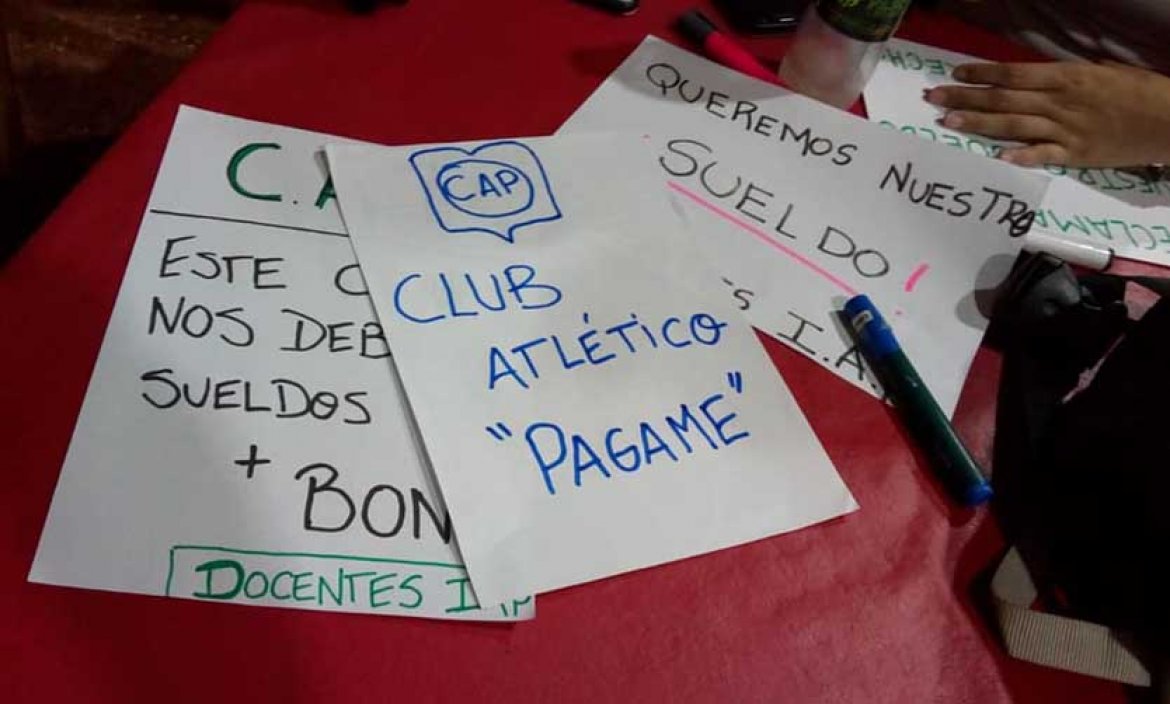 C.A
ESTE C
NOS DEB
SUELDOS
+ BON
DOCENTES I
CAP
CLUB
ATLÉTICO
"PAGAME"
QUEREMOS NUESTRO
SUELDO!
S I.A.
ECLAMA